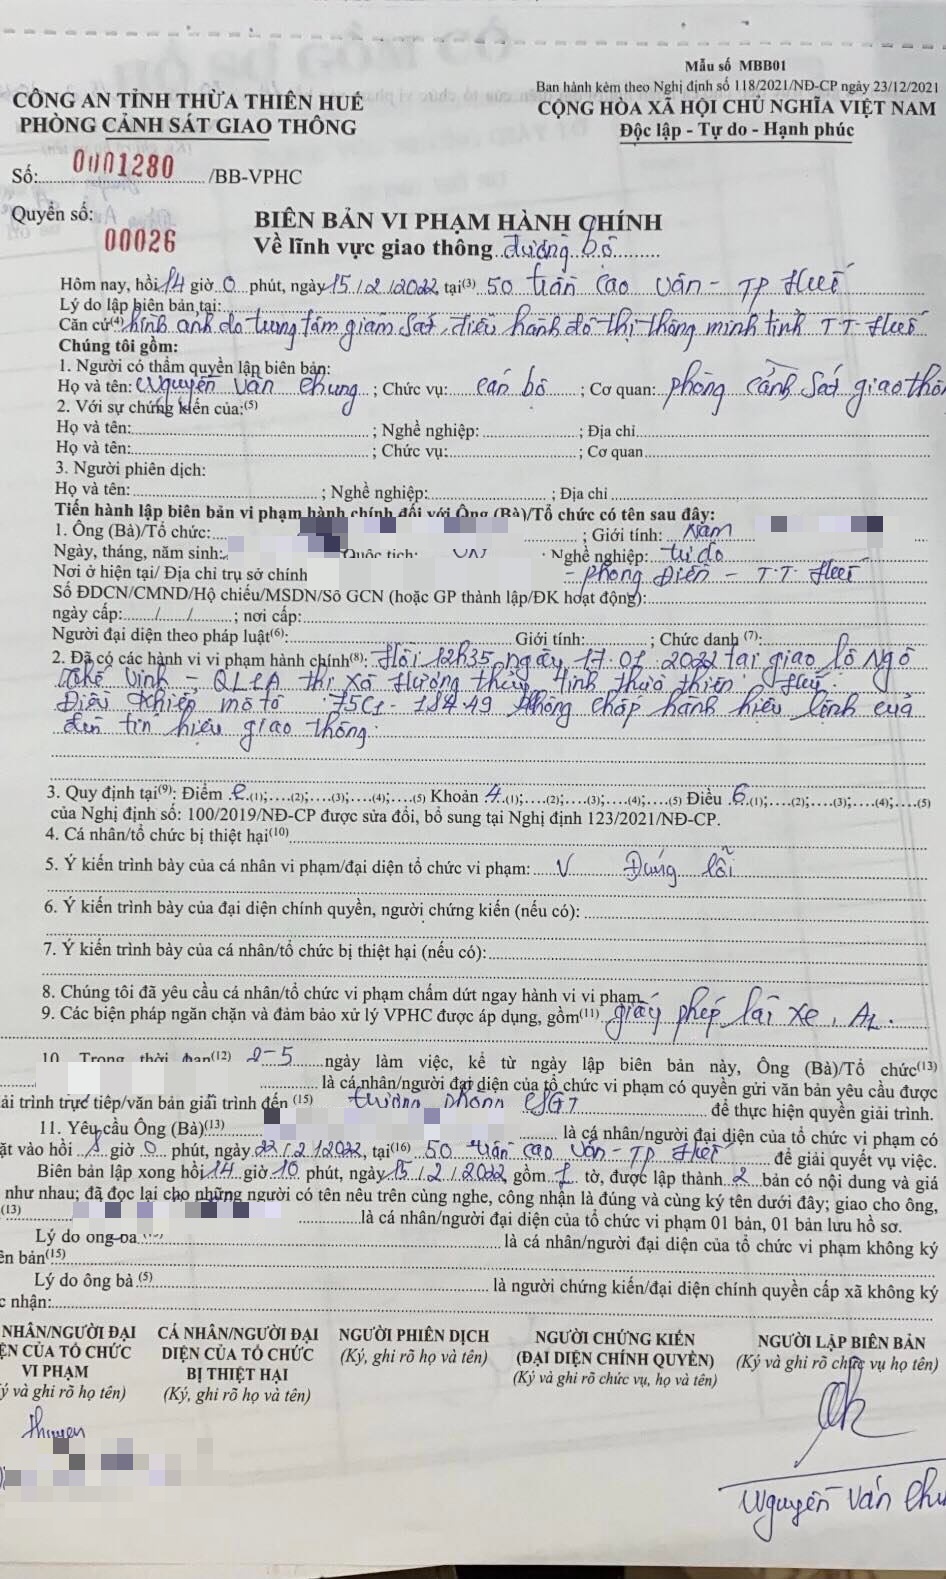 Mẫu số MBB01
Ban hành kèm theo Nghị định số 118/2021/NĐ-CP ngày 23/12/2021
CÔNG AN TỈNH THỪA THIÊN HUẾ
CỘNG HÒA XÃ HỘI CHỦ NGHĨA VIỆT NAM
PHÒNG CẢNH SÁT GIAO THÔNG
Độc lập - Tự do - Hạnh phúc
Số: 0001280 /BB-VPHC
Quyển số: 00026
BIÊN BẢN VI PHẠM HÀNH CHÍNH
Về lĩnh vực giao thông đường bộ
Hôm nay, hồi 14 giờ 0 phút, ngày 15/2/2022 tại(3) 50 trần cao vân - TP Huế
Lý do lập biên bản tại:
Căn cứ(4) hình ảnh do trung tâm giám sát, điều hành đô thị thông minh tỉnh T.T. Huế
Chúng tôi gồm:
1. Người có thẩm quyền lập biên bản:
Họ và tên: Nguyễn Văn Chung ; Chức vụ: cán bộ ; Cơ quan: phòng cảnh sát giao thôn
2. Với sự chứng kiến của:(5)
Họ và tên: ; Nghề nghiệp: ; Địa chỉ
Họ và tên: ; Chức vụ: ; Cơ quan
3. Người phiên dịch:
Họ và tên: ; Nghề nghiệp: ; Địa chỉ
Tiến hành lập biên bản vi phạm hành chính đối với Ông (Bà)/Tổ chức có tên sau đây:
1. Ông (Bà)/Tổ chức: ; Giới tính: Nam
Ngày, tháng, năm sinh: Quốc tịch: VN Nghề nghiệp: tự do
Nơi ở hiện tại/ Địa chỉ trụ sở chính - phong Điền - T.T. Huế
Số ĐDCN/CMND/Hộ chiếu/MSDN/Số GCN (hoặc GP thành lập/ĐK hoạt động):
ngày cấp: / / ; nơi cấp:
Người đại diện theo pháp luật(6): Giới tính: ; Chức danh (7):
2. Đã có các hành vi vi phạm hành chính(8): Hồi 12h35 ngày 17.01.2022 tại giao lộ Ngô
thế Vinh - QL1A thị xã Hương thủy tỉnh thừa thiên Huế
Điều khiển mô tô 75C1-184.49 không chấp hành hiệu lệnh của
đèn tín hiệu giao thông.
3. Quy định tại(9): Điểm e.(1);....(2);....(3);....(4);....(5) Khoản 4.(1);....(2);....(3);....(4);....(5) Điều 6.(1);....(2);....(3);....(4);....(5)
của Nghị định số: 100/2019/NĐ-CP được sửa đổi, bổ sung tại Nghị định 123/2021/NĐ-CP.
4. Cá nhân/tổ chức bị thiệt hại(10)
5. Ý kiến trình bày của cá nhân vi phạm/đại diện tổ chức vi phạm: V Đúng lỗi
6. Ý kiến trình bày của đại diện chính quyền, người chứng kiến (nếu có):
7. Ý kiến trình bày của cá nhân/tổ chức bị thiệt hại (nếu có):
8. Chúng tôi đã yêu cầu cá nhân/tổ chức vi phạm chấm dứt ngay hành vi vi phạm
9. Các biện pháp ngăn chặn và đảm bảo xử lý VPHC được áp dụng, gồm(11) giấy phép lái xe, A1.
10. Trong thời hạn(12) 2-5 ngày làm việc, kể từ ngày lập biên bản này, Ông (Bà)/Tổ chức(13)
là cá nhân/người đại diện của tổ chức vi phạm có quyền gửi văn bản yêu cầu được
ải trình trực tiếp/văn bản giải trình đến (15) trưởng phòng CSGT để thực hiện quyền giải trình.
11. Yêu cầu Ông (Bà)(13) là cá nhân/người đại diện của tổ chức vi phạm có
ặt vào hồi 8 giờ 0 phút, ngày 22/2/2022, tại(16) 50 trần cao vân - TP Huế để giải quyết vụ việc.
Biên bản lập xong hồi 14 giờ 10 phút, ngày 15/2/2022 gồm 1 tờ, được lập thành 2 bản có nội dung và giá
như nhau; đã đọc lại cho những người có tên nêu trên cùng nghe, công nhận là đúng và cùng ký tên dưới đây; giao cho ông,
(13) là cá nhân/người đại diện của tổ chức vi phạm 01 bản, 01 bản lưu hồ sơ.
Lý do ông bà là cá nhân/người đại diện của tổ chức vi phạm không ký
ên bản(15)
Lý do ông bà (5) là người chứng kiến/đại diện chính quyền cấp xã không ký
c nhận:
NHÂN/NGƯỜI ĐẠI CÁ NHÂN/NGƯỜI ĐẠI NGƯỜI PHIÊN DỊCH NGƯỜI CHỨNG KIẾN NGƯỜI LẬP BIÊN BẢN
ỆN CỦA TỔ CHỨC DIỆN CỦA TỔ CHỨC (Ký, ghi rõ họ và tên) (ĐẠI DIỆN CHÍNH QUYỀN) (Ký và ghi rõ chức vụ họ tên)
VI PHẠM BỊ THIỆT HẠI (Ký và ghi rõ chức vụ, họ và tên)
ý và ghi rõ họ tên) (Ký, ghi rõ họ và tên)
Nguyễn Văn Chu